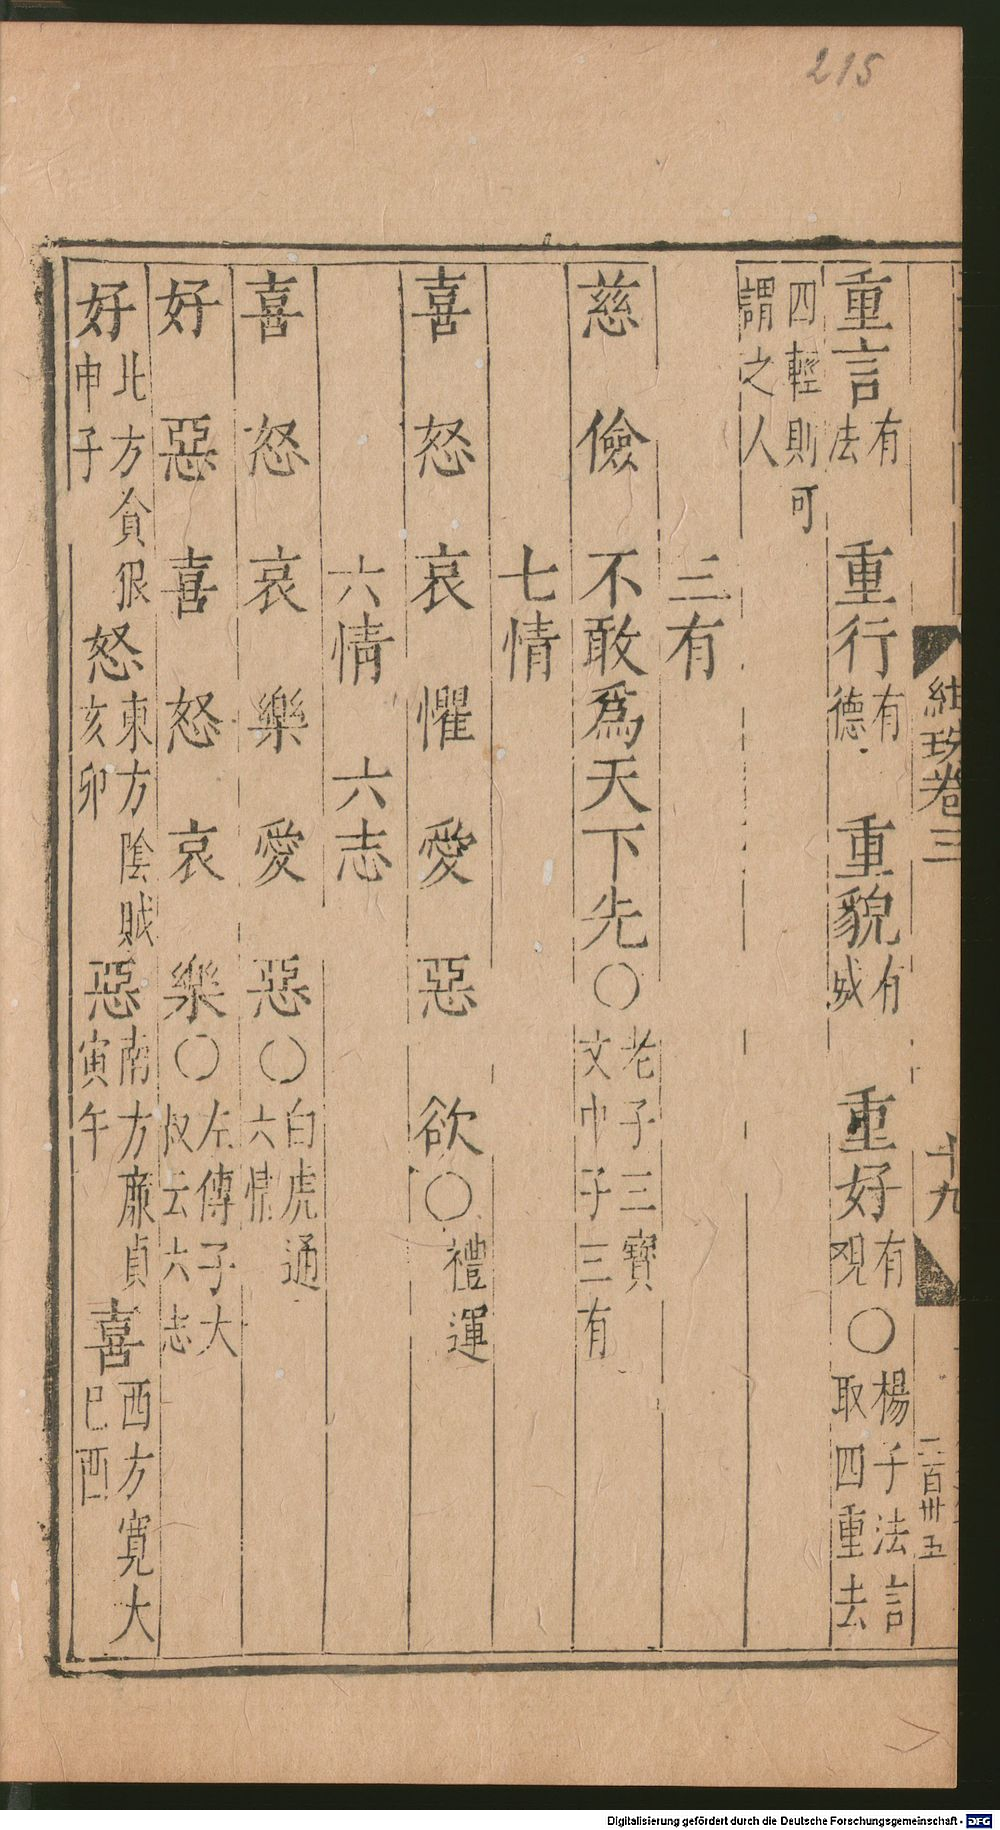 215
紺珠卷三
十九
二百卅五
重言有法 重行有德 重貌有威 重好有观〇楊子法言取四重去
四輕則可謂之人
三有
慈 儉 不敢爲天下先〇老子三寶文中子三有
七情
喜 怒 哀 懼 愛 惡 欲〇禮運
六情 六志
喜 怒 哀 樂 愛 惡〇白虎通六情
好 惡 喜 怒 哀 樂〇左傳子大叔云六志
好北方貪狠申子 怒東方陰賊亥卯 惡南方廉貞寅午 喜西方寬大巳酉
Digitalisierung gefördert durch die Deutsche Forschungsgemeinschaft - DFG